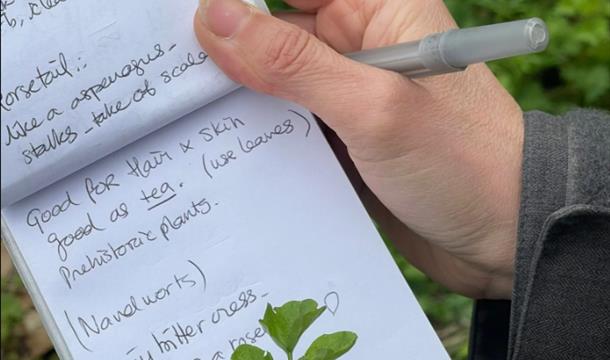 b, c
Horsetail:
like a aspenagus -
stalks - take of scale
Good for Hair x Skin
good as tea. (use leaves)
Prehistoric plants.
(Nandworts)
bitter cress -
a rose